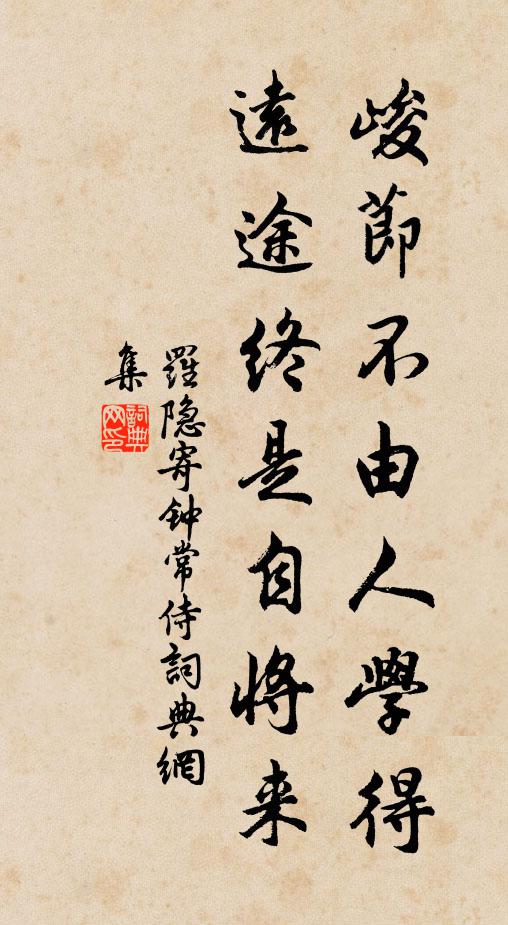 峻節不由人學得
遠途終是自將来
羅隐寄钟常侍詞典網
集
詞典
网印